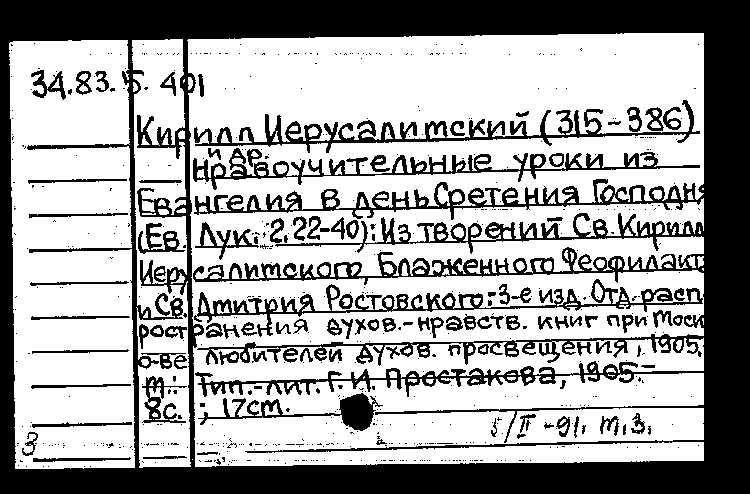 34.83.5.401
Кирилл Иерусалимский (315-386)
и др.
Нравоучительные уроки из
Евангелия в день Сретения Господня
(Ев. Лук. 2,22-40): Из творений Св. Кирилл
Иерусалимского, Блаженного Феофилакт
и Св. Дмитрия Ростовского.-3-е изд. Отд. расп
ространения духов.-нравств. книг при Моск
о-ве любителей духов. просвещения, 1905.
М.: Тип.-лит. Г. И. Простакова, 1905.-
8с. ; 17cm.
5/II -91. м.з.
3